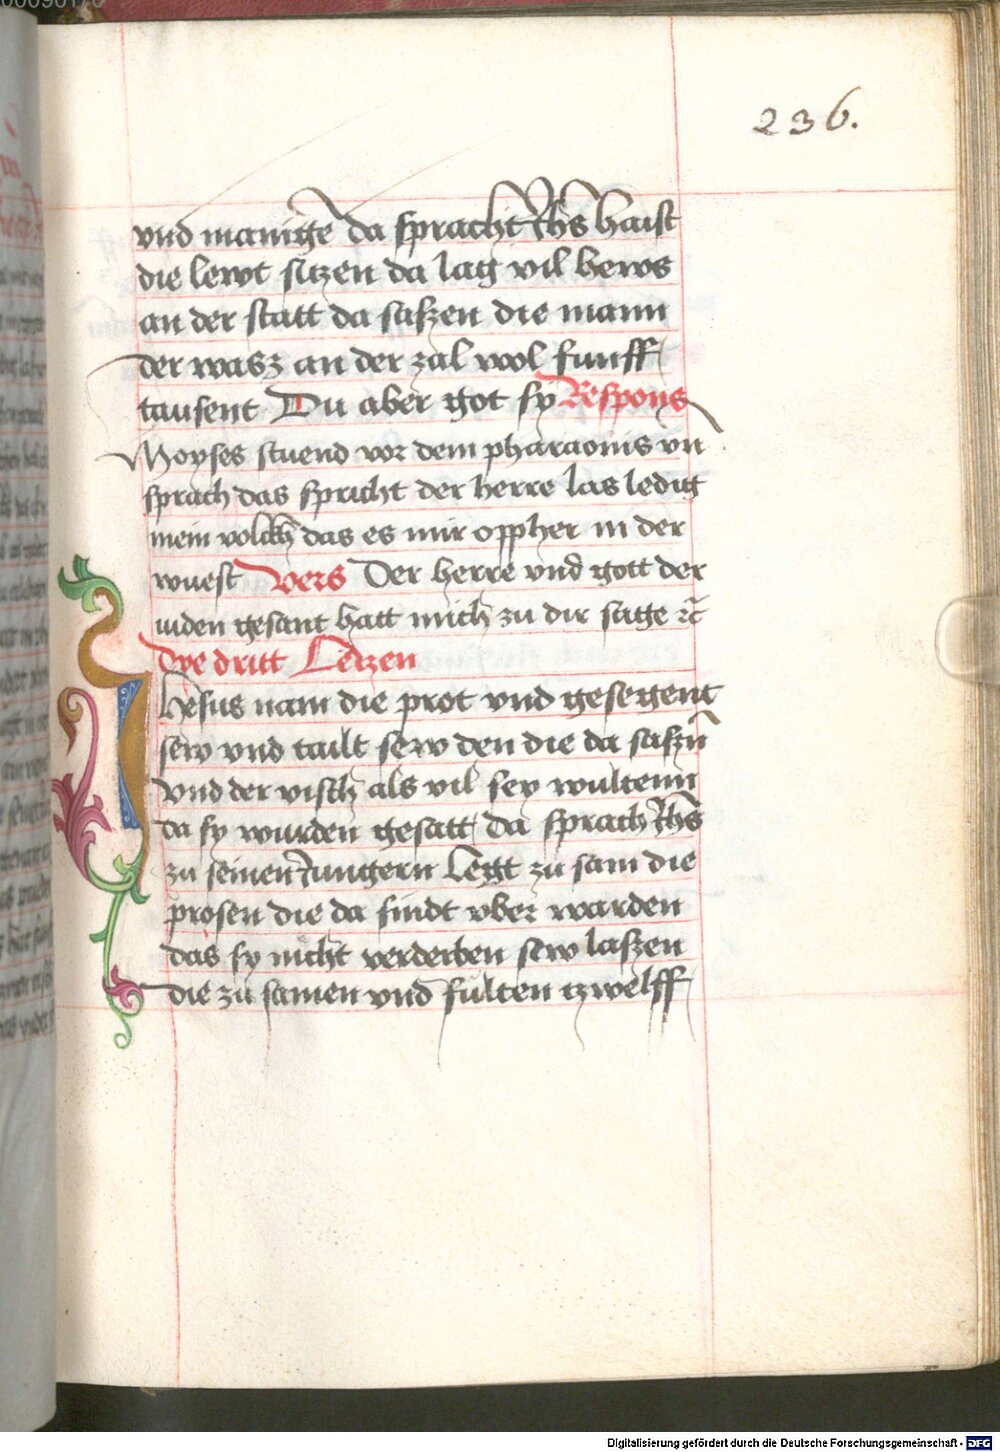 236.
vnd manigẽ da spracht Jhs haist
die lewt sitzen da lag vil hews
an der statt da saſzen die mann
der wasz an der zal wol funff
tausent Du aber got sy Respons
Moyses stuend vor dem pharaonis vn̄
sprach das spricht der herre las ledig
mein volckh das es mir oppher in der
wuest Vers Der herre vnd gott der
iuden gesant hatt mich zu dir sage ꝛc̄
Dye dritt Letzen
Ihesus nam die prot vnd gesegent
sew vnd tailt sew den die da saſzn̄
vnd der visch als vil sey wultenn
da sy wurden gesatt da sprach Jhs
zu seinen Jungern Legt zu sam die
prosen die da findt vber warden
das sy nicht verderben sew laſzen
die zu samen vnd fulten tzwelff
Digitalisierung gefördert durch die Deutsche Forschungsgemeinschaft - DFG